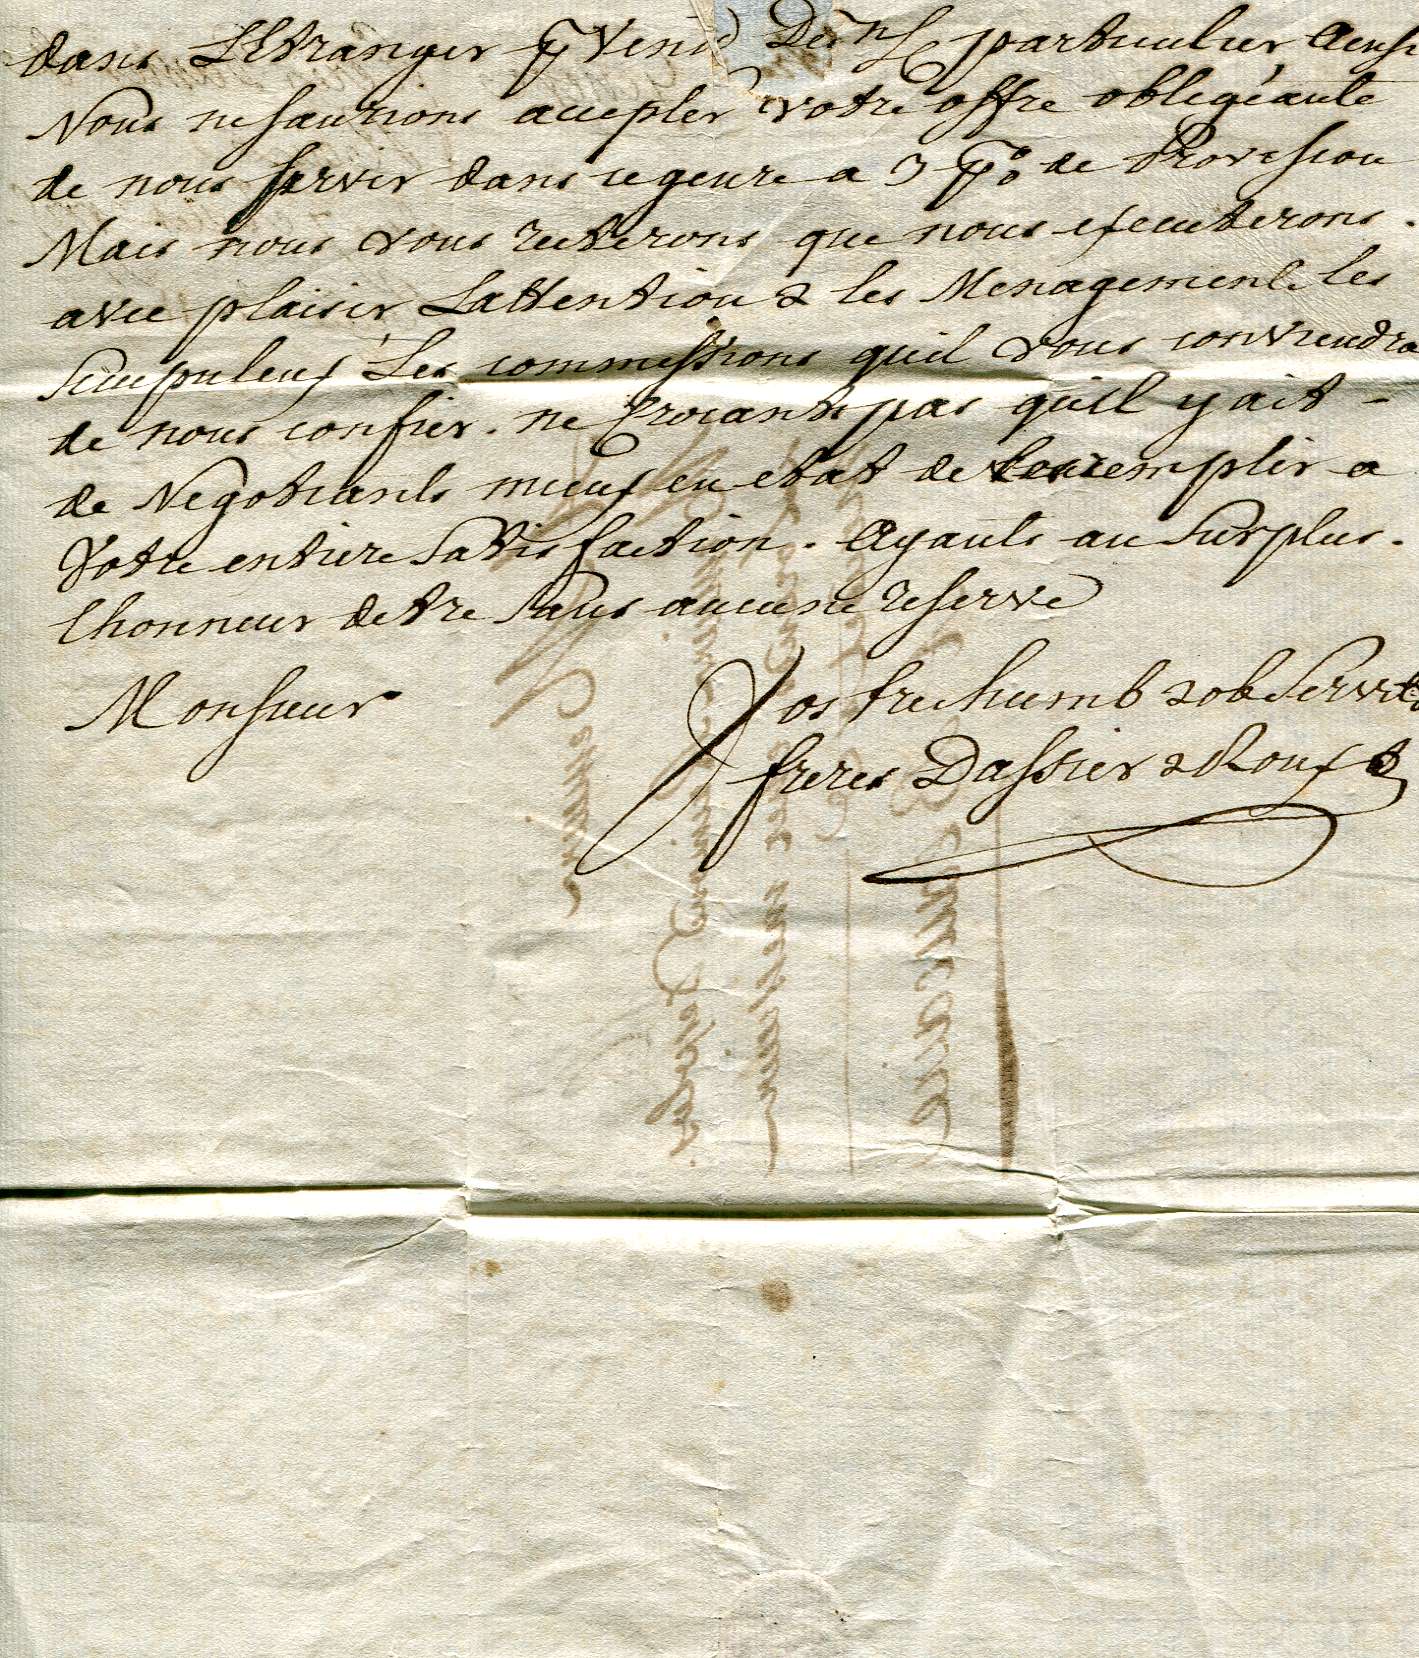 dans L'Etranger par particulier Ainsi
Nous ne saurions accepter votre offre obligéante
de nous servir dans ce genre a 3 p% de Provision
Mais nous vous reiterons que nous executerons.
avec plaisir Lattention & les Menagements les
scrupuleux Les commissions quil vous conviendra
de nous confier. ne Croiants pas qu'il y ait -
de Negotiants mieux en etat de remplir a
Votre entiere satisfaction. Ayants au surplus.
lhonneur detre sans aucune reserve
Monsieur
Vos tres humb & ob Servits
freres Dassier & Roux